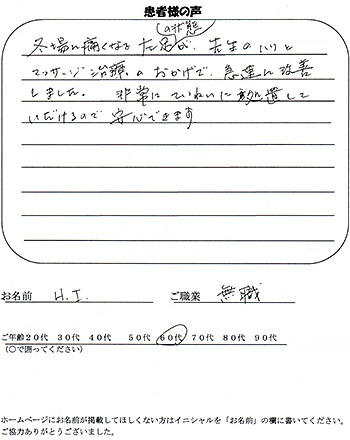 患者様の声
の状態
冬場に痛くなる左足が、先生のハリと
マッサージ治療のおかげで、急速に改善
しました。 非常にていねいに処置して
いただけるので安心できます
お名前 H.I. ご職業 無職
ご年齢20代 30代 40代 50代 60代 70代 80代 90代
(〇で囲ってください)
ホームページにお名前が掲載してほしくない方はイニシャルを「お名前」の欄に書いてください。
ご協力ありがとうございました。